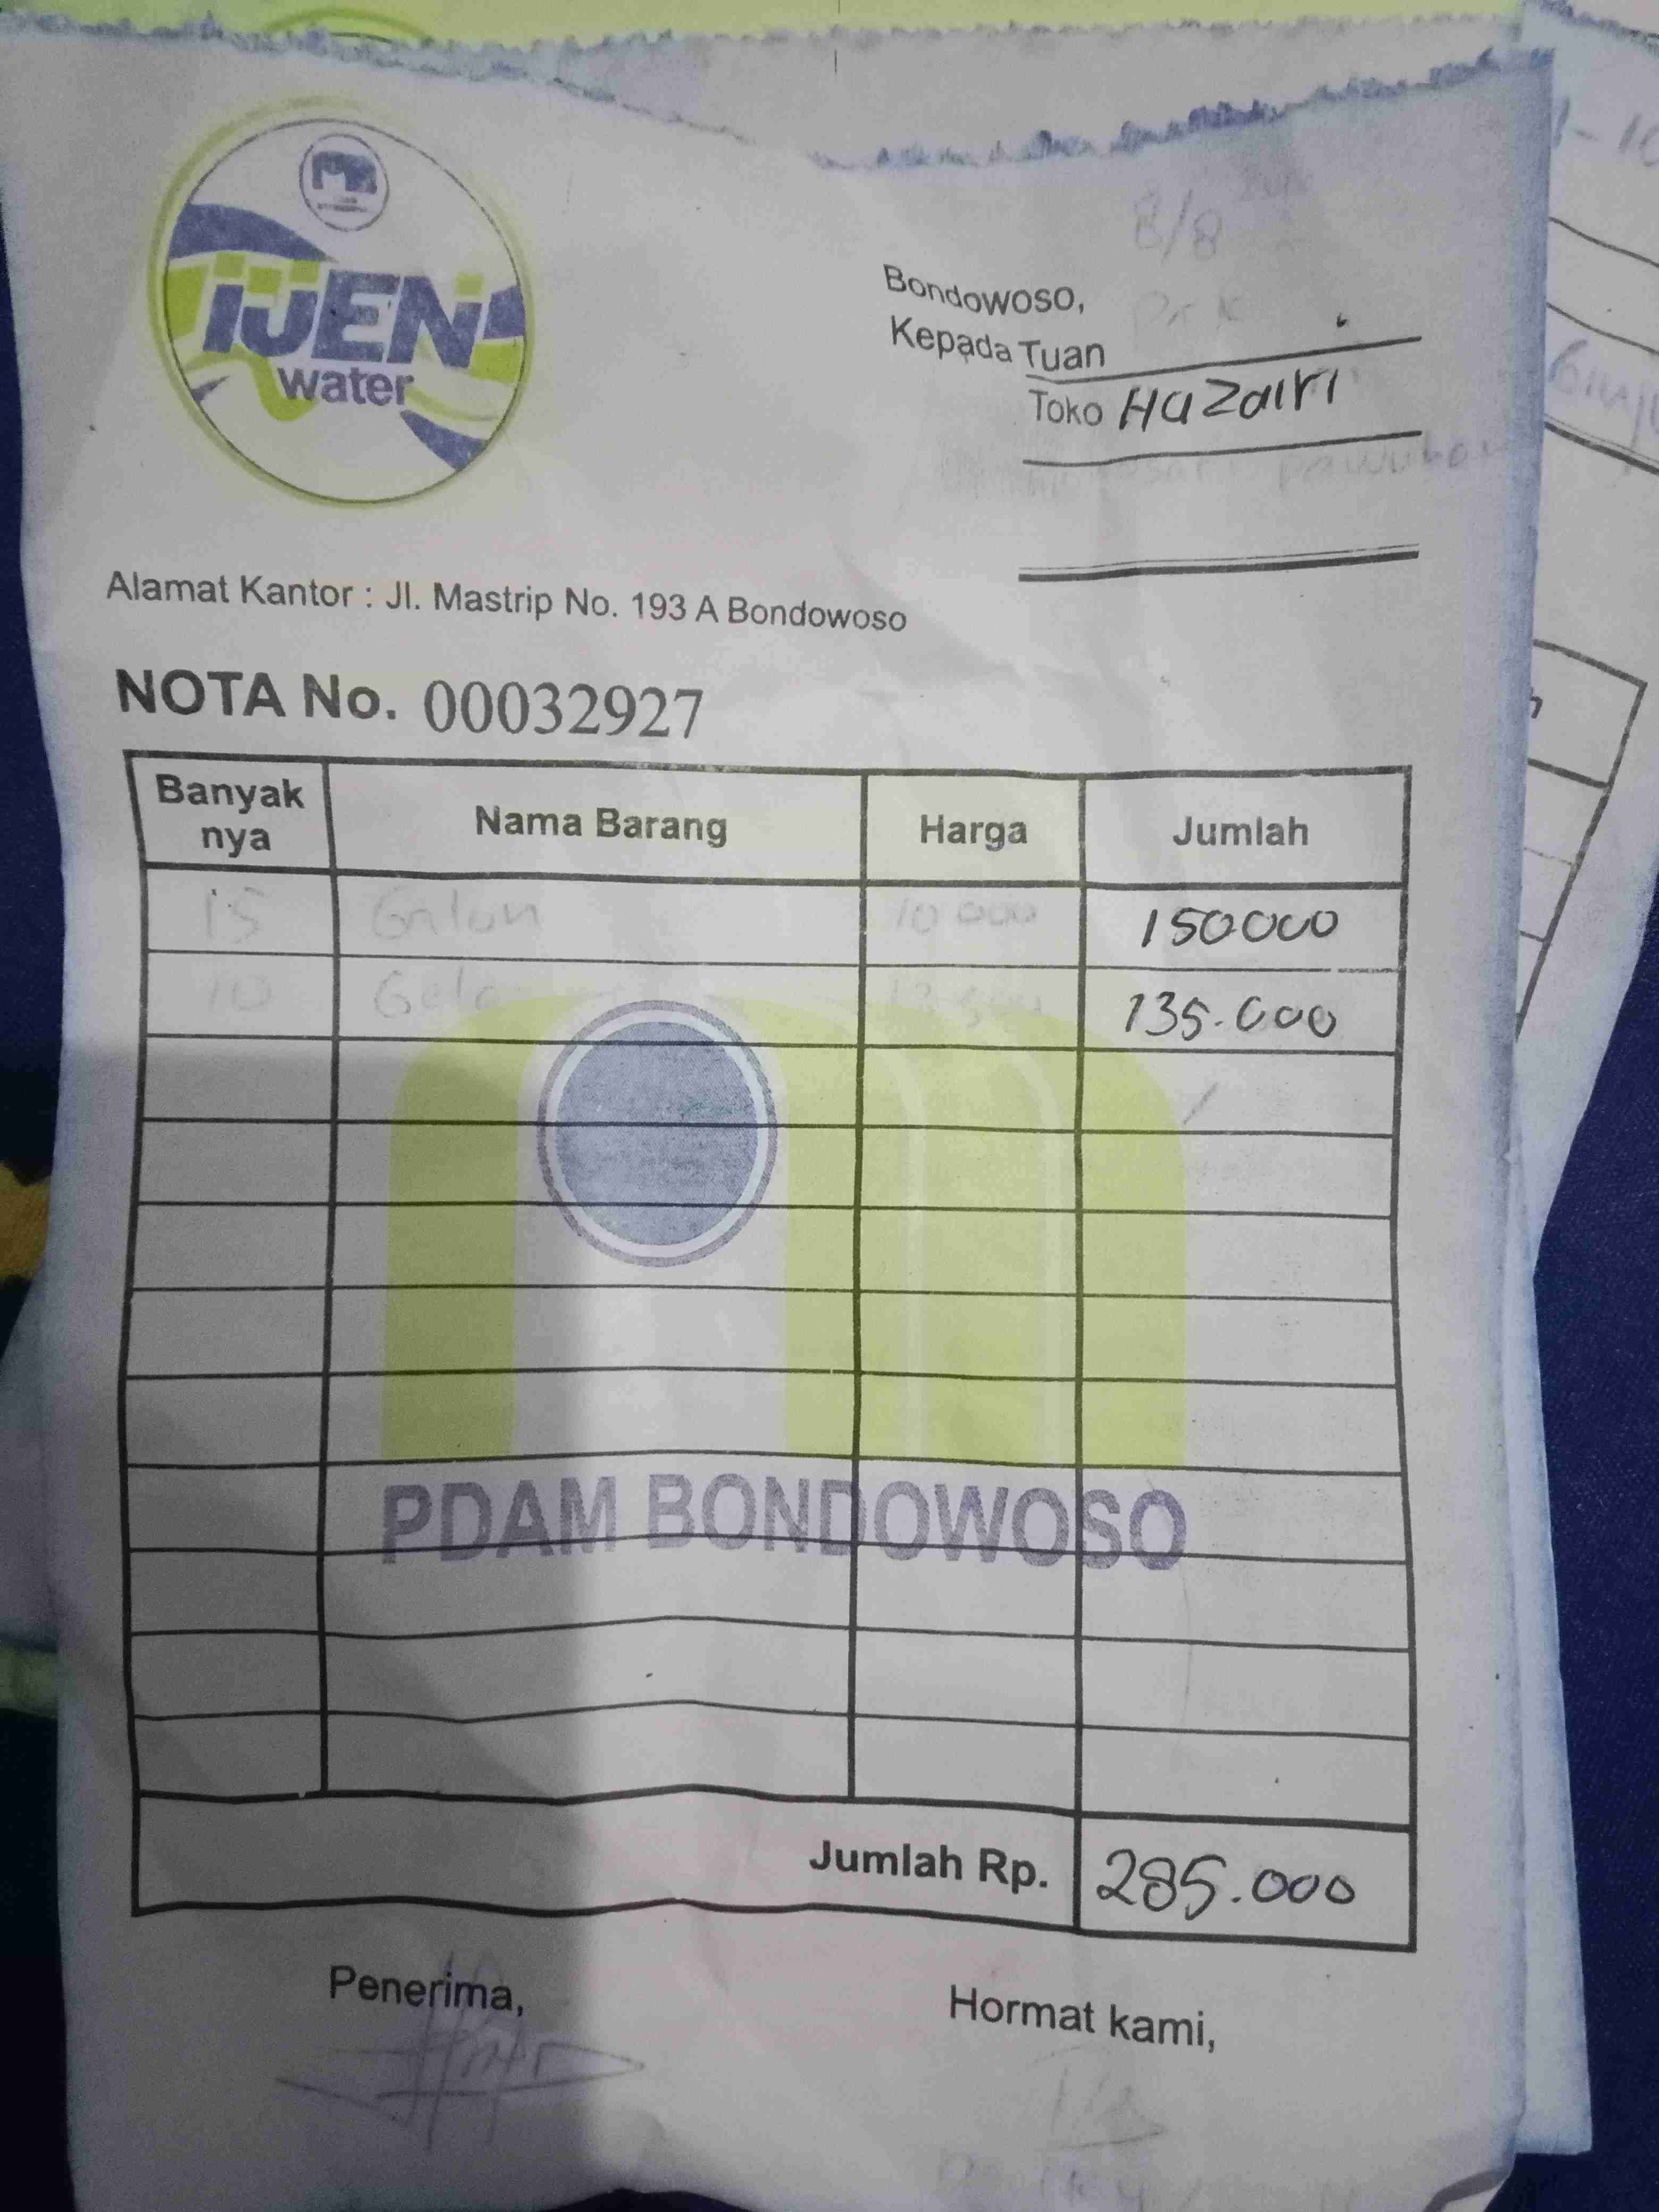 IJEN
water
8/8
Bondowoso,
Kepada Tuan
Toko Hazairi
Alamat Kantor : Jl. Mastrip No. 193 A Bondowoso
NOTA No. 00032927
Banyak nya Nama Barang Harga Jumlah
15 Galon 10 000 150000
10 135.000
PDAM BONDOWOSO
Jumlah Rp. 285.000
Penerima, Hormat kami,